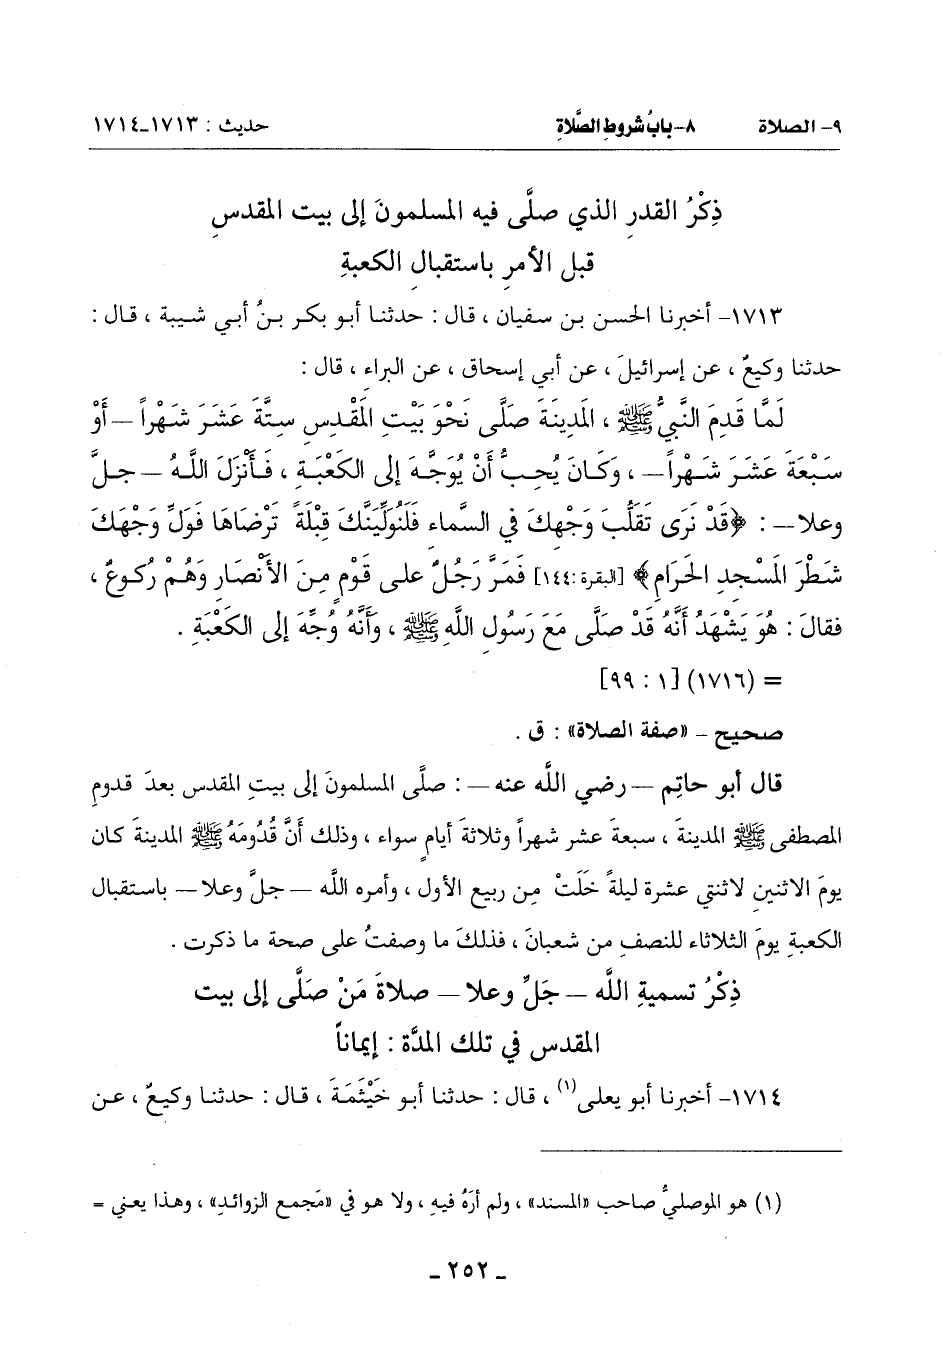 ٩- الصلاة ٨- بابُ شروطِ الصَّلاةِ حديث : ١٧١٣-١٧١٤
ذِكْرُ القدرِ الذي صلَّى فيه المسلمونَ إلى بيت المقدسِ
قبل الأمرِ باستقبالِ الكعبةِ
١٧١٣- أخبرنا الحسن بن سفيان ، قال : حدثنا أبو بكر بنُ أبي شيبة ، قال :
حدثنا وكيعٌ ، عن إسرائيلَ ، عن أبي إسحاق ، عن البراء ، قال :
لَمَّا قَدِمَ النَّبيُّ ﷺ ، المَدِينَةَ صَلَّى نَحْوَ بَيْتِ المَقْدِسِ سِتَّةَ عَشَرَ شَهْراً – أَوْ
سَبْعَةَ عَشَرَ شَهْراً – ، وَكَانَ يُحِبُّ أَنْ يُوَجَّهَ إلى الكَعْبَةِ ، فَأَنْزَلَ اللَّهُ – جلَّ
وعلا – : ﴿قَدْ نَرَى تَقَلُّبَ وَجْهِكَ في السَّماء فَلَنُوَلِّيَنَّكَ قِبْلَةً تَرْضَاهَا فَوَلِّ وَجْهَكَ
شَطْرَ المَسْجِدِ الحَرَامِ﴾ [البقرة :١٤٤] فَمَرَّ رَجُلٌ على قَوْمٍ مِنَ الأَنْصَارِ وَهُمْ رُكوعٌ ،
فقالَ : هُوَ يَشْهَدُ أَنَّهُ قَدْ صَلَّى مَعَ رَسُولِ اللَّهِ ﷺ ، وَأَنَّهُ وُجِّهَ إلى الكَعْبَةِ .
= (١٧١٦) [١ : ٩٩]
صحيح - «صفة الصلاة» : ق .
قال أبو حاتِم – رضي اللَّه عنه – : صلَّى المسلمونَ إلى بيتِ المقدس بعدَ قدومِ
المصطفى ﷺ المدينةَ ، سبعةَ عشر شهراً وثلاثةَ أيامٍ سواء ، وذلك أَنَّ قُدُومَهُ ﷺ المدينةَ كان
يومَ الاثنينِ لاثنتي عشرة ليلةً خَلَتْ مِن ربيع الأول ، وأمره اللَّه – جلَّ وعلا – باستقبال
الكعبةِ يومَ الثلاثاء للنصف من شعبانَ ، فذلكَ ما وصفتُ على صحة ما ذكرت .
ذِكْرُ تسميةِ اللَّه – جَلَّ وعلا – صلاةَ مَنْ صَلَّى إلى بيت
المقدس في تلك المدَّة : إيماناً
١٧١٤- أخبرنا أبو يعلى(١) ، قال : حدثنا أبو خَيْثَمَةَ ، قال : حدثنا وكيعٌ ، عن
(١) هو الموصليُّ صاحب «المسند» ، ولم أرَهُ فيهِ ، ولا هو في «مَجمع الزوائد» ، وهذا يعني =
- ٢٥٢ -